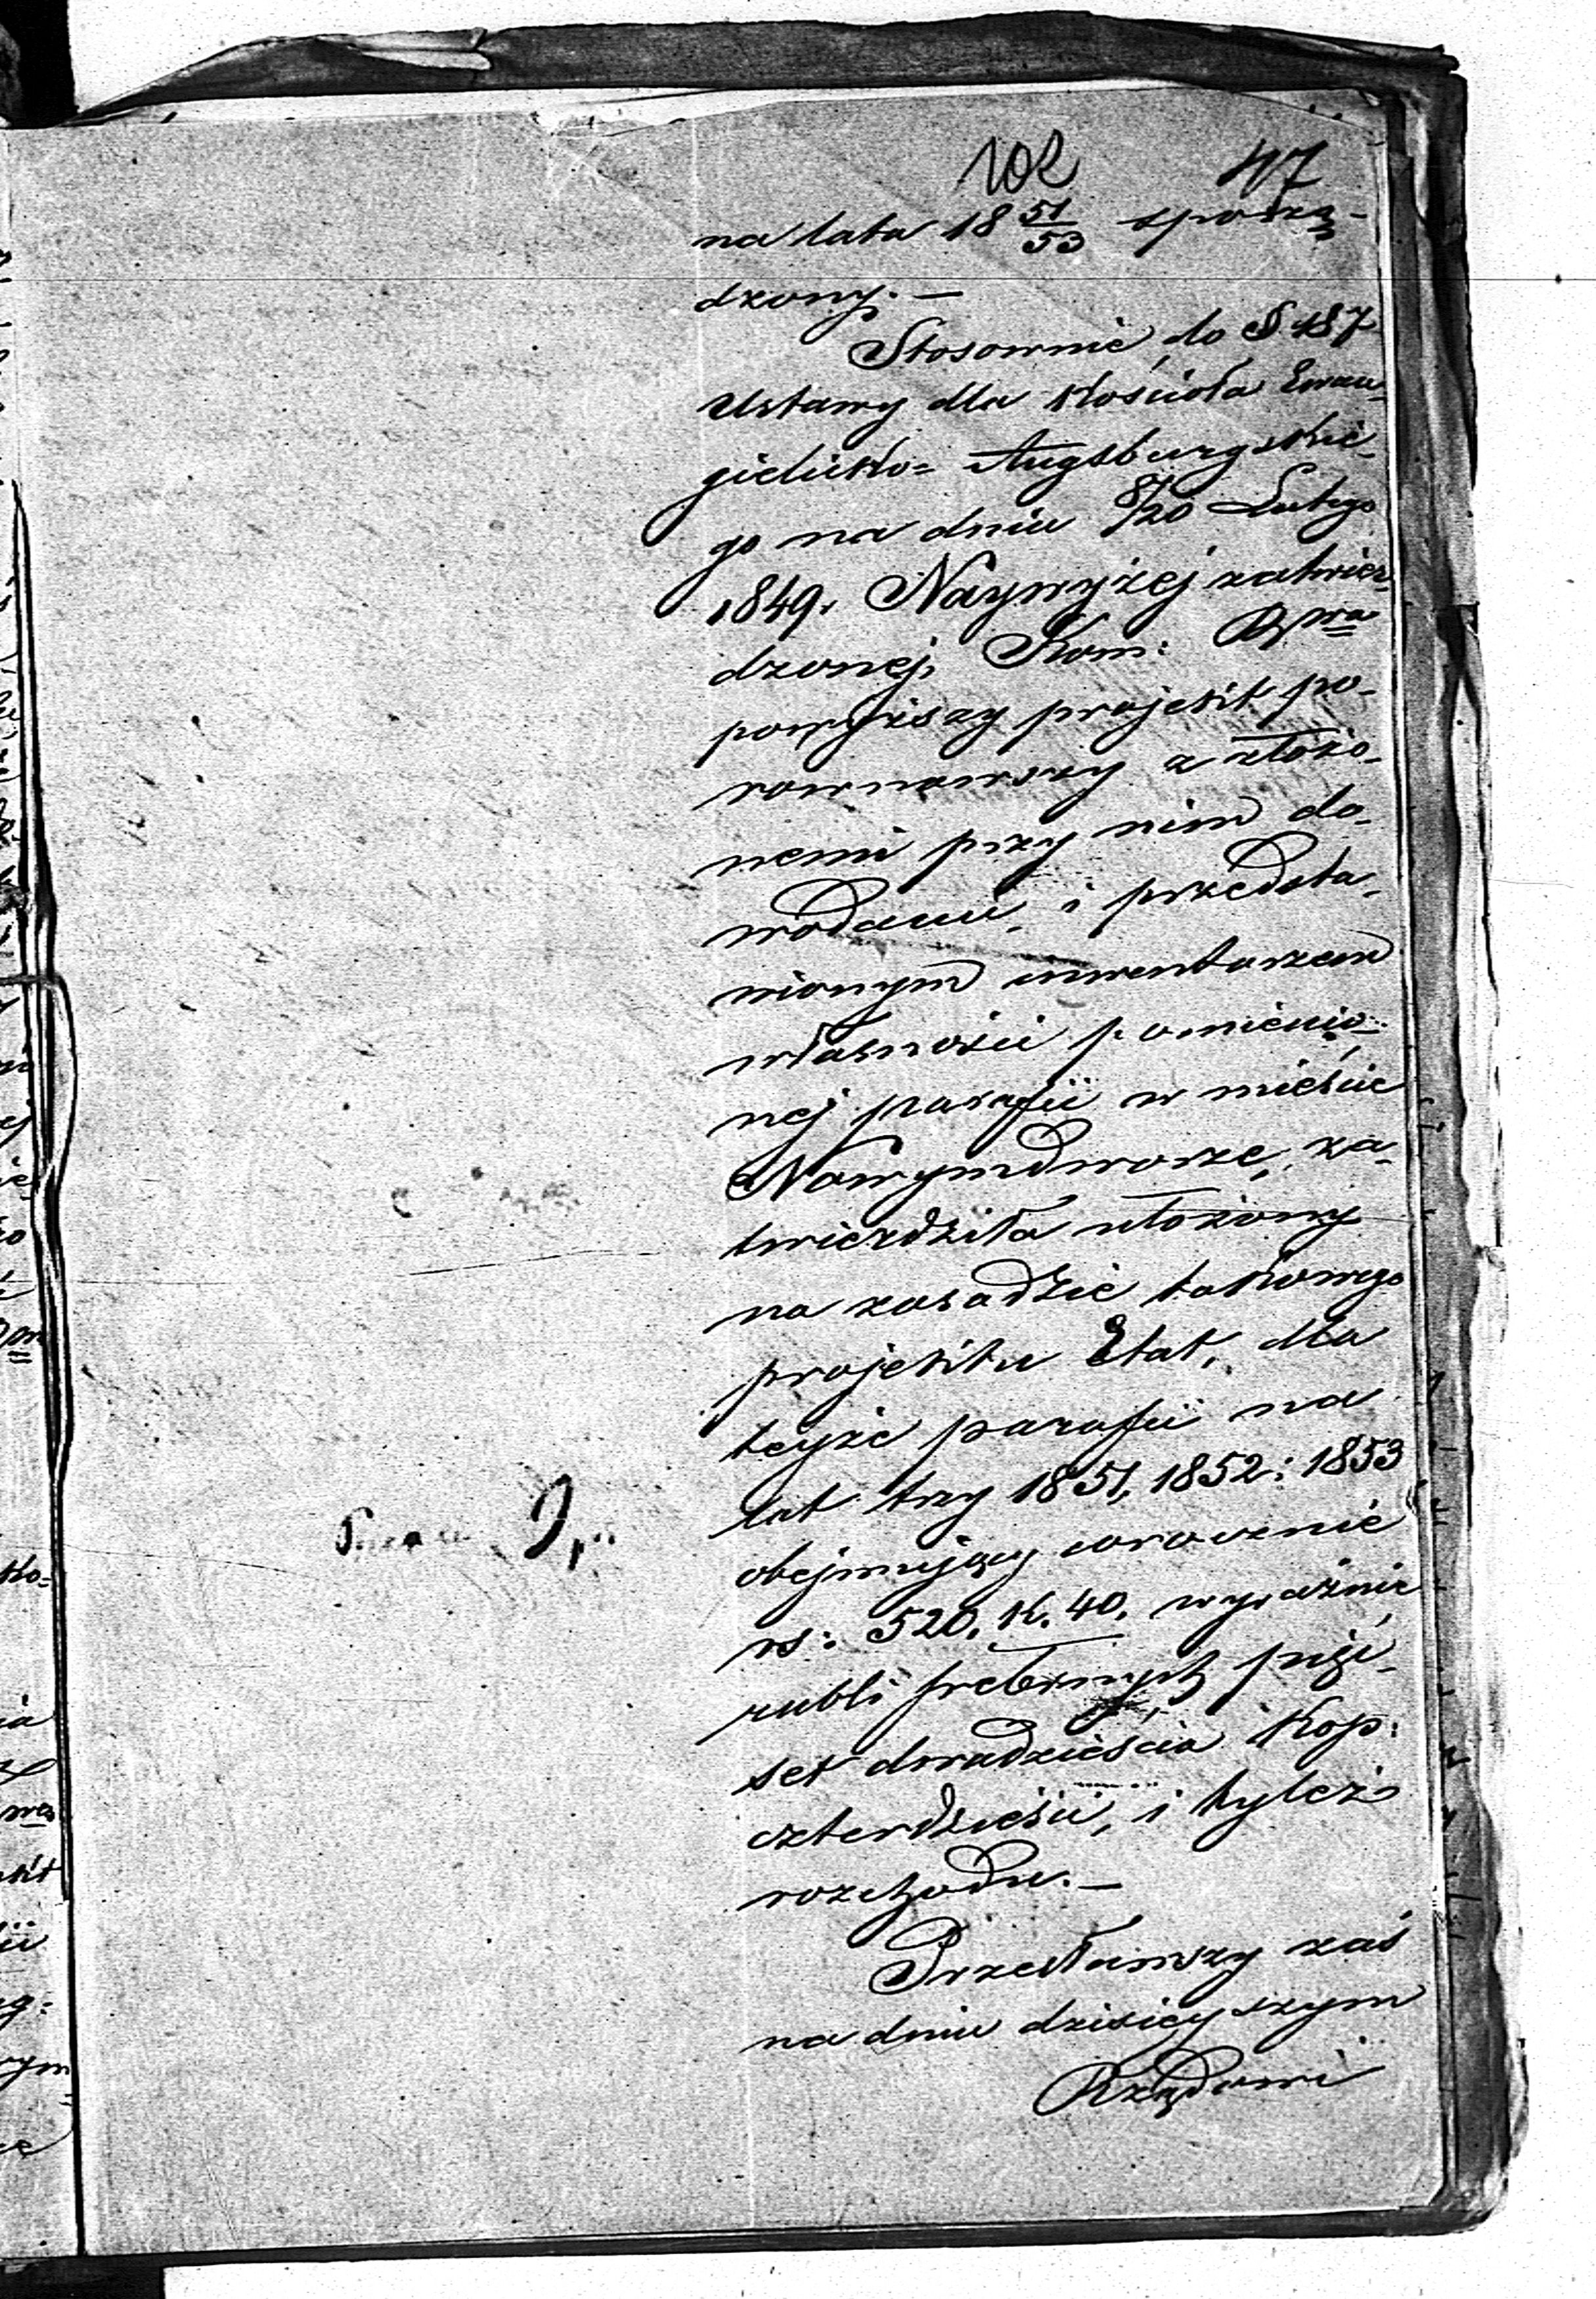 102 47
na lata 18 51/53 sporzą-
dzony. —
Stosownie do § 187
Ustawy dla Kościoła Ewan-
gielicko= Augsburgskie-
go na dniu 8/20 Lutego
1849. Naywyżej zatwier-
dzonej, Kom: Rzwa
powyższy projekt po-
rownawszy z złożo-
nemi przy nim do-
wodami, i przedsta-
wionym inwentarzem
własności pomienio-
nej parafii w mieście
Nowymdworze, za-
twierdziła ułożony
na zasadzie takowego
projektu Etat, dla
teyże parafii na
lat trzy 1851, 1852 i 1853
obejmujący corocznie
rs: 520. K. 40. wyraźnie
rubli srebrnych pięć-
set dwadzieścia Kop:
czterdzieści, i tyleż
rozchodu. —
Przesławszy zaś
na dniu dzisieyszym
Rządowi